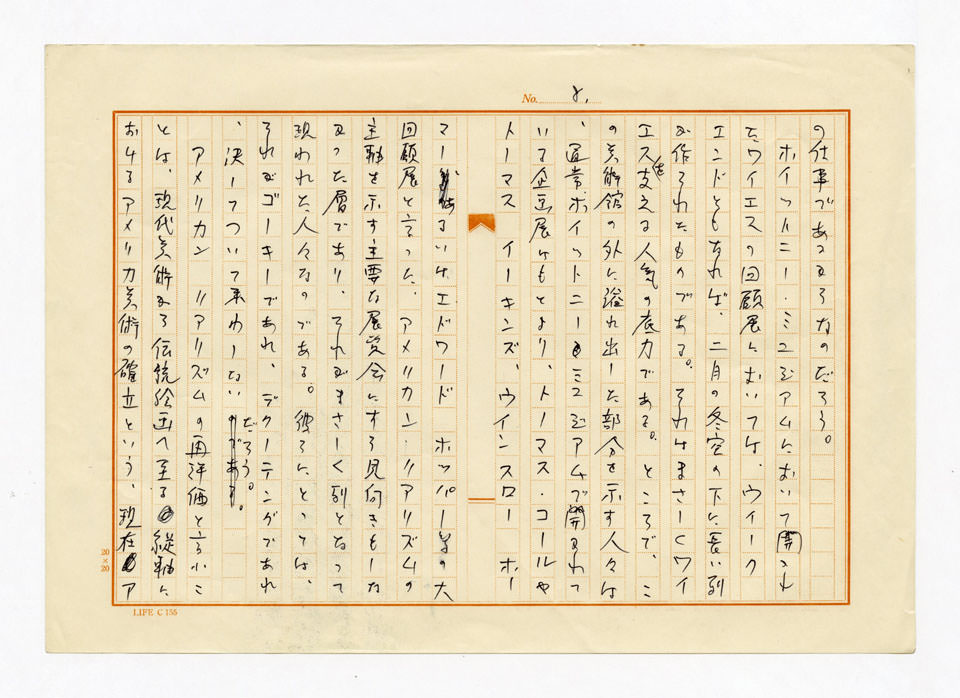 No. 8.
の仕事であつたろうなのだろう。
ホイットニー・ミユジアムにおいて開かれ
たワイエスの回顧展においては、ウイーク
エンドともなれば、二月の冬空の下に長い列
が作られたものである。それはまさしくワイ
エスを支える人気の底力である。ところで、こ
の美術館の外に溢れ出した部分を示す人々は
、通常ホイットニー・ミユジアムで開かれて
いる企画展はもとより、トーマス・コールや
トーマス イーキンズ、ウインスロー ホー
マーあるいはエドワード ホッパー等の大
回顧展と言った、アメリカン・リアリズムの
主軸を示す主要な展覧会にすら見向きもしな
かった層であり、それがまさしく列となって
現われた人々なのである。彼らにとっては、
それがゴーキーであれ、デクーニングであれ
、決してついて来れはしないだろう。
アメリカン リアリズムの再評価と言うこ
とは、現代美術から伝統絵画へ至る縦軸に
おけるアメリカ美術の確立という、現在ア
20×20
LIFE C 155